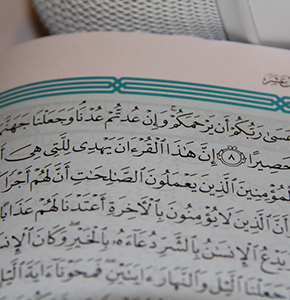 عَسَىٰ رَبُّكُمْ أَن يَرْحَمَكُمْ ۚ وَإِنْ عُدتُّمْ عُدْنَا ۘ وَجَعَلْنَا جَهَنَّمَ
حَصِيرًا ﴿٨﴾ إِنَّ هَٰذَا ٱلْقُرْءَانَ يَهْدِى لِلَّتِى هِىَ
ٱلْمُؤْمِنِينَ ٱلَّذِينَ يَعْمَلُونَ ٱلصَّٰلِحَٰتِ أَنَّ لَهُمْ أَجْرًا
أَنَّ ٱلَّذِينَ لَا يُؤْمِنُونَ بِٱلْءَاخِرَةِ أَعْتَدْنَا لَهُمْ عَذَابًا
يَدْعُ ٱلْإِنسَٰنُ بِٱلشَّرِّ دُعَآءَهُۥ بِٱلْخَيْرِ ۖ وَكَانَ
جَعَلْنَا ٱلَّيْلَ وَٱلنَّهَارَ ءَايَتَيْنِ ۖ فَمَحَوْنَآ ءَايَةَ ٱلَّيْلِ